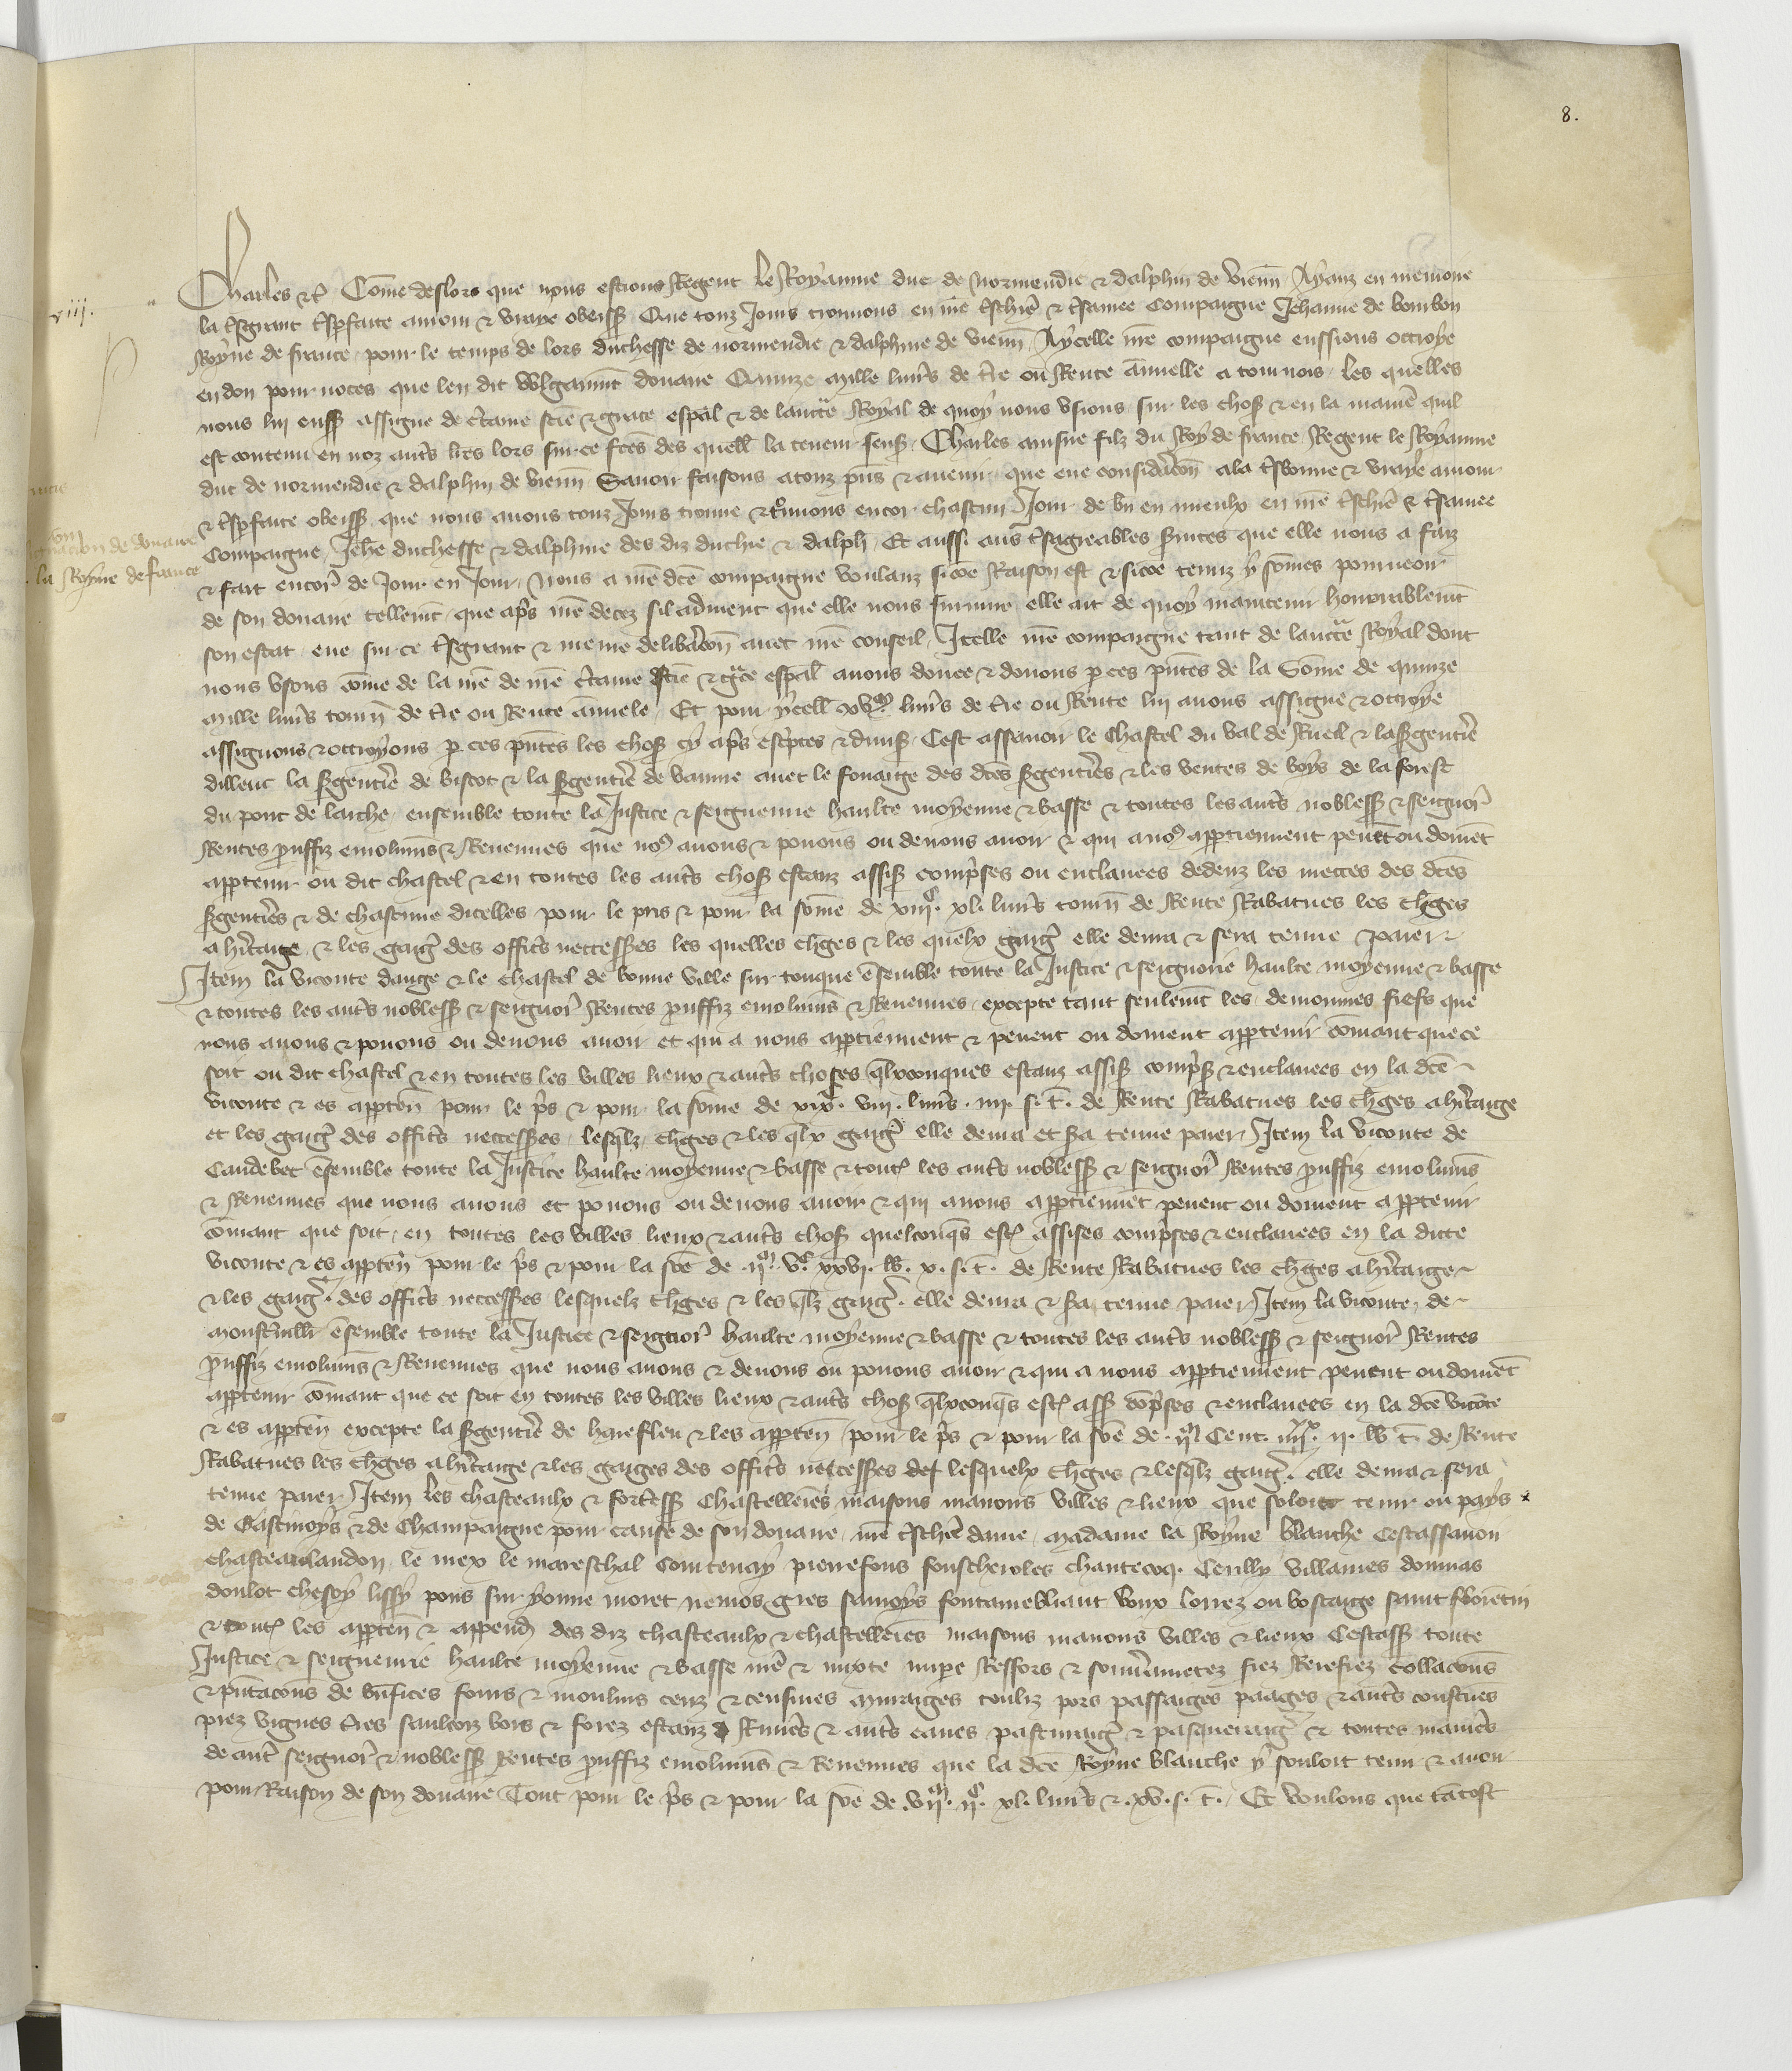 8.
xiii.
Charles etc. Come deslors que nous estions Regent le Royaume duc de Normendie & dalphin de vienn Ayanz en memoire
la tsgrant tspfaite amour & vraye obeiss Que touz Jours trouvons en nre tschiere & tsamee Compaigne Jehanne de bourbon
Royne de france pour le temps de lors duchesse de normendie & dalphine de vienn Aycelle nre compaigne eussions octroye
en don pour noces que len dit vulgaumt douaire Quinze Mille livres de tre ou Rente annuelle a tournois les quelles
nous lui euss assigne de ctaine scie & grace espal & de lauctte Royal de quoy nous usions sur les chos & en la maniere quil
est contenu en noz autres lres lors sur ce fces des quell la teneur sensuit Charles ainsne filz du Roy de france Regent le Royaume
duc de normendie & dalphin de vienn Savoir faisons a touz pns & avenir que eue consideracon a la tsbonne & vraye amour
& tspfaite obeiss que nous avons touz Jours trouve & trouvons encor chascun Jour de bn en mieulx en nre tschiere & tsamee
Compaigne Jehe duchesse & dalphine des diz duchie & dalph Et aussi aus tsagreables services que elle nous a faiz
& fait encores de Jour en Jour Nous a nre dce compaigne voulanz sicoe Raison est & sicoe tenuz y somes pourveoir
de son douaire tellemt que apres nre decez sil advient que elle nous survive elle ait de quoy maintenir honorablemt
son estat eue sur ce tsgrant & meure deliberacon avec nre conseil Icelle nre compaigne tant de lauctte Royal dont
nous usons come de la nre de nre ctaine scie & grace espal avons donee & donons p ces pntes de la Some de quinze
Mille livres tourn de tre ou Rente annuele Et pour ycell xvm livres de tre ou Rente lui avons assigne & octroye
assignons & octroyons p ces pntes les chos cy apres escptes & divis Cest assavoir le Chastel du val de Rueil & la Sgentie
dilleuc la Sgentie de biscot & la Sgentie de vanine avec le fouaige des dces Sgenties & les ventes de boys de la forest
du pont de larche ensemble toute la Justice & seigneurie haulte moyenne & basse & toutes les autres nobless & seignor
Rentes prouffiz emolumns & Revenues que nos avons & povons ou devons avoir & qui a nos apptiennent pevent ou doivet
apptenir ou dit chastel & en toutes les autres chos estanz assis comprises ou enclavees dedenz les mettes des dces
Sgenties & de chascune dicelles pour le pris & pour la some de xiiiic. xl. livres tourn de Rente Rabatues les chges
a heritaige & les gaiges des offices neccesses les quelles chges & les quelx gaiges elle devra & sera tenue paier
Item la viconte dauge & le chastel de bonne ville sur touque ensemble toute la Justice & seignorie haulte moyenne & basse
& toutes les autres nobless & seignor Rentes prouffiz emolumns & Revenues excepte tant seulemt les demourans fiefs que
nous avons & povons ou devons avoir et qui a nous apptiennent & pevent ou doivent apptenir comant que ce
soit ou dit chastel & en toutes les villes lieux & autres choses qlxconques estanz assis compris & enclavees en la dce
viconte & es appten pour le pris & pour la some de xixc. viii. livres. iiii. s. t. de Rente Rabatues les chges a heritaige
et les gaiges des offices neccesses lesqlz chges & les qlx gaiges elle devra et sera tenue paier Item la viconte de
Caudebec ensemble toute la Justice haulte moyenne & basse & toutes les autres nobless & seignor Rentes prouffiz emolumns
& Revenues que nous avons et povons ou devons avoir & qui a nous apptiennet pevent ou doivent apptenir
comant que soit en toutes les villes lieux & autres chos quelconqs est assises comprises & enclavees en la dicte
viconte & es appten pour le pris & pour la soe de .iim. vc. xxvi. lb. x. s. t. de Rente Rabatues les chges a heritaige
& les gaiges des offices neccesses lesquelz chges & les qlz gaiges elle devra & sera tenue paier Item la viconte de
Monstivillr ensemble toute la Justice & seignor haulte moyenne & basse & toutes les autres nobless & seignor Rentes
prouffiz emolumns & Revenues que nous avons & devons ou povons avoir & qui a nous apptiennent pevent ou doivet
apptenir comant que ce soit en toutes les villes lieux & autres chos qlxconqs est ass comprises & enclavees en la dce viconte
& es appten excepte la Sgentie de harefleu & les appten pour le pris & pour la soe de .iim. Cent. iiiixx. ii. lb t. de Rente
Rabatues les chges a heritaige & les gaiges des offices neccesses lesquelx chges & lesqlz gaiges elle devra & sera
tenue paier Item les chasteaulx & fortress Chastelleries maisons manoirs villes & lieux que soloit tenir ou pays
de Gastinoys & de Champaigne pour cause de son douaire nre tschiere dame Madame la Royne blanche Cestassavoir
Chasteaulandon le mex le mareschal Courtenay pierrefons fouscheroles chantecoq. Cerilly villaines dommas
doulot chesoy lissy pons sur yonne moret nemos gres samoys fontainebliaut voux lorrez ou boscaige saint florentin
& toutes les appten & append des diz chasteaulx & chastelleries maisons manoirs villes & lieux Cestass toute
Justice & seigneurie haulte moyenne & basse mere & mixte impe Ressors & souverainetez fiez Rerefiez collacons
& pntacons de benfices fours & moulins cenz & censives minaiges tonliz pors passaiges paages & autres coustues
prez vignes tres saulcoiz bois & forez estanz Rivieres & autres eaues pasturaiges & pasqueraiges & toutes manieres
de autres seignor & nobless Rentes prouffiz emolumns & Revenues que la dce Royne blanche y souloit tenir & avoir
pour Raison de son douaire Tout pour le pris & pour la soe de .viim. iic. xl. livres & .xv. s. t. Et voulons que tatost
gnacion de douaire
la Royne de france